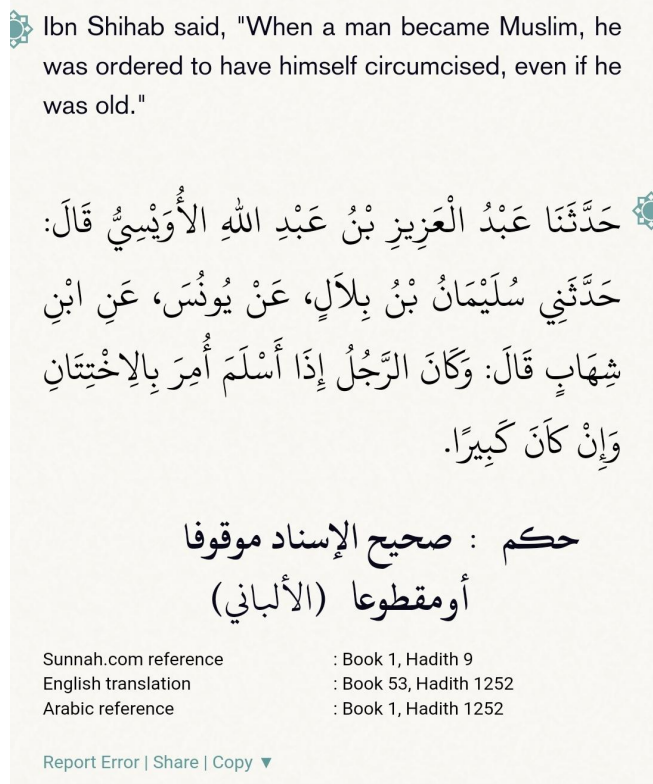 Ibn Shihab said, "When a man became Muslim, he
was ordered to have himself circumcised, even if he
was old."
حَدَّثَنَا عَبْدُ الْعَزِيزِ بْنُ عَبْدِ اللهِ الأُوَيْسِيُّ قَالَ:
حَدَّثَنِي سُلَيْمَانُ بْنُ بِلاَلٍ، عَنْ يُونُسَ، عَنِ ابْنِ
شِهَابٍ قَالَ: وَكَانَ الرَّجُلُ إِذَا أَسْلَمَ أُمِرَ بِالِاخْتِتَانِ
وَإِنْ كَانَ كَبِيرًا.
حكم : صحيح الإسناد موقوفا
أومقطوعا (الألباني)
Sunnah.com reference : Book 1, Hadith 9
English translation : Book 53, Hadith 1252
Arabic reference : Book 1, Hadith 1252
Report Error | Share | Copy ▼